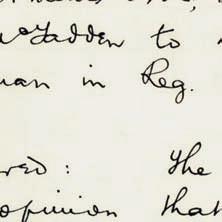 McFadden to
man in Reg.
red: The
opinion that